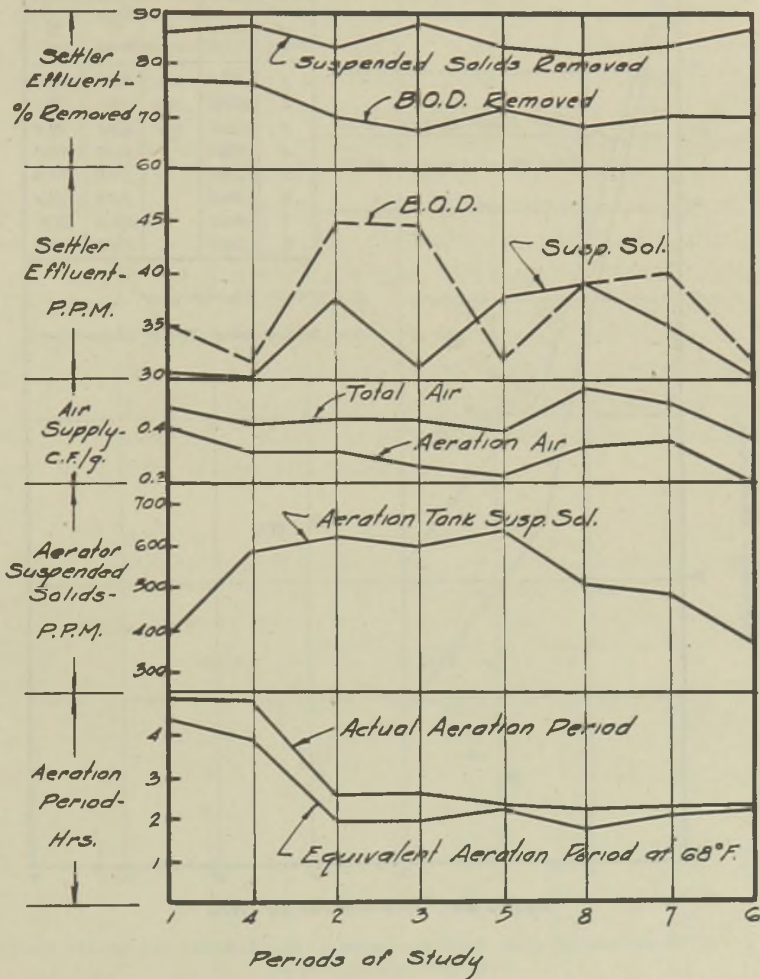 90
80
70
60
Settler
Effluent-
% Removed
Suspended Solids Removed
B.O.D. Removed
Settler
Effluent-
P.P.M.
45
40
35
30
B.O.D.
Susp. Sol.
Air
Supply-
C.F./g.
0.4
Total Air
Aeration Air
Aerator
Suspended
Solids-
P.P.M.
700
600
500
400
300
Aeration Tank Susp. Sol.
Aeration
Period-
Hrs.
4
3
2
1
Actual Aeration Period
Equivalent Aeration Period at 68°F.
1 4 2 3 5 8 7 6
Periods of Study